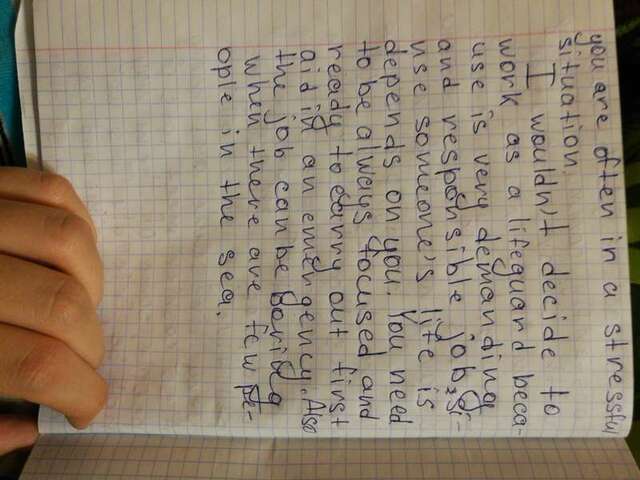 you are often in a stressful
situation.
I wouldn't decide to
work as a lifeguard beca-
use is very demanding
and responsible job,
use someone's life is
depends on you. You need
to be always focused and
ready to carry out first
aid in an emergency. Also
the job can be boring
when there are few pe-
ople in the sea.